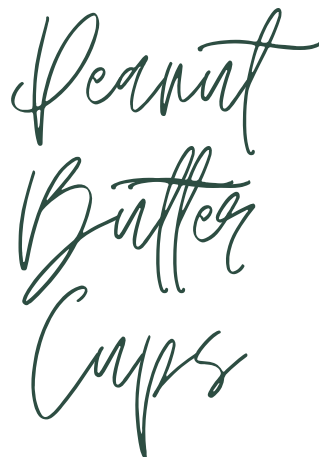 Peanut
Butter
Cups